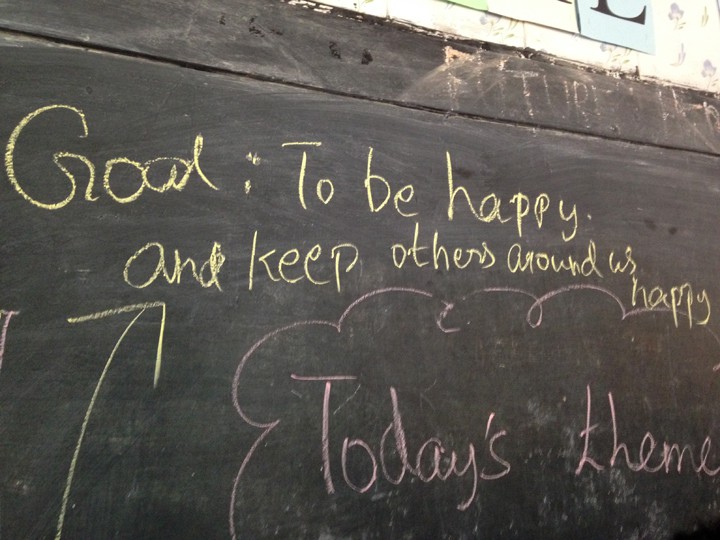 Goal : To be happy.
and keep others around us
happy
Today's theme